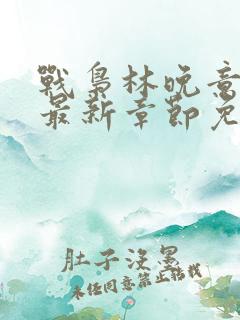 戰梟林晚意
最新章節免
肚子沒墨
未經同意禁止轉載